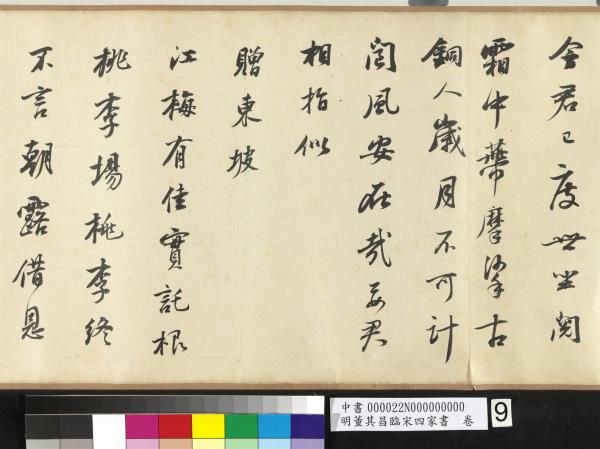 今君已度世坐閱
霜中蔕摩挲古
銅人歲月不可計
閬風安在哉要君
相指似
贈東坡
江梅有佳實託根
桃李場桃李終
不言朝露借恩
中書 000022N000000000
明董其昌臨宋四家書 卷
9